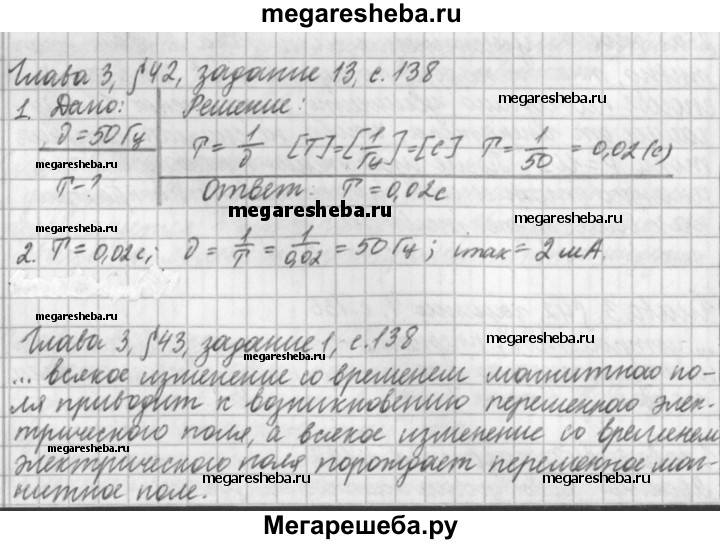 megaresheba.ru
Глава 3, §42, задание 13, с. 138
1. Дано: Решение:
megaresheba.ru
ν = 50 Гц
T = 1/ν [T] = [1/Гц] = [с] T = 1/50 = 0,02 (с)
megaresheba.ru
megaresheba.ru
T - ? Ответ: T = 0,02 с
megaresheba.ru
megaresheba.ru
megaresheba.ru
2. T = 0,02 с; ν = 1/T = 1/0,02 = 50 Гц; imax = 2 мА.
megaresheba.ru
Глава 3, §43, задание 1, с. 138
megaresheba.ru
megaresheba.ru
... всякое изменение со временем магнитного по-
ля приводит к возникновению переменного элек-
трического поля, а всякое изменение со временем
megaresheba.ru
электрического поля порождает переменное маг-
нитное поле.
megaresheba.ru
megaresheba.ru
Мегарешеба.ру